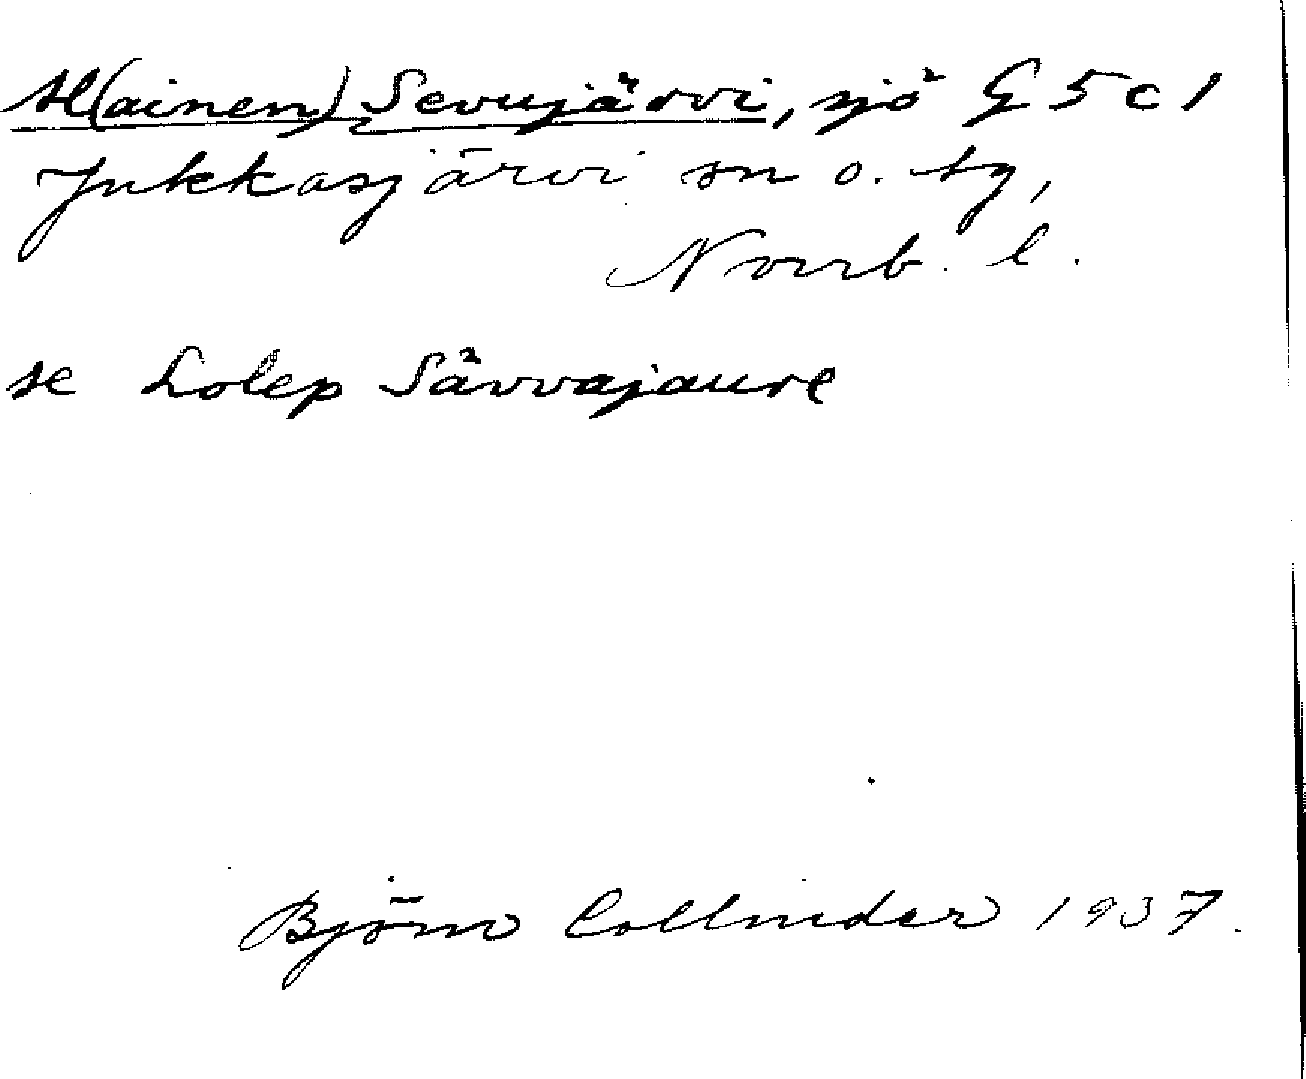 Al(ainen) Sevujärvi, sjö G 5 c 1
Jukkasjärvi sn o. tg,
Norrb. l.
se Lolep Sävvajaure
Björn Collinder 1937.